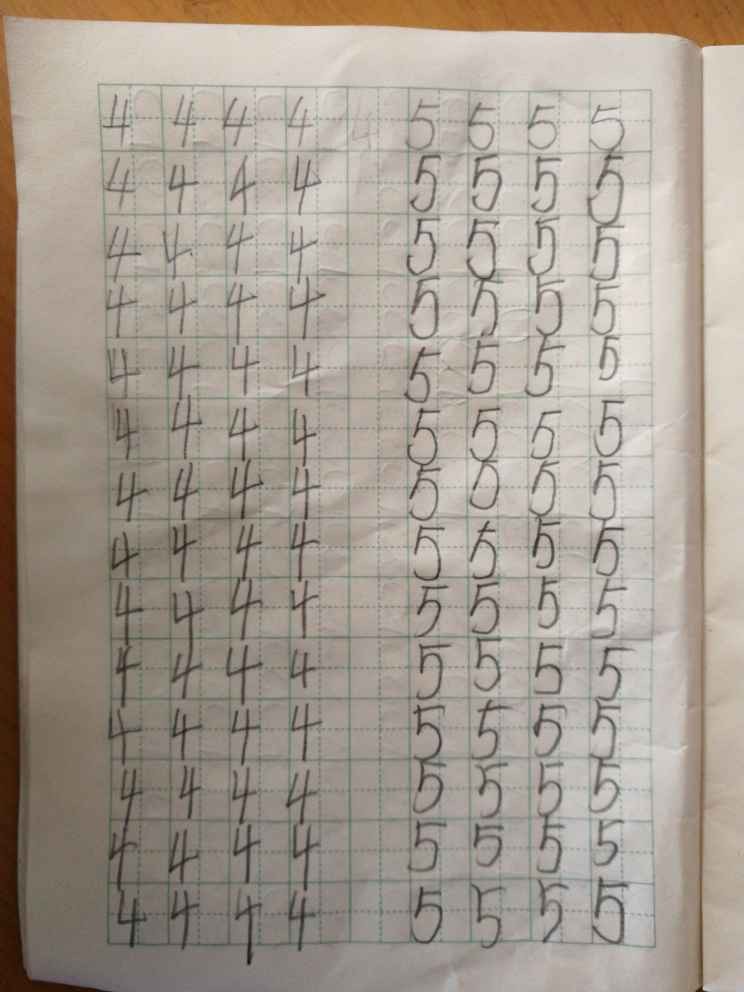 4 4 4 4 4 5 5 5 5
4 4 4 4 5 5 5 5
4 4 4 4 5 5 5 5
4 4 4 4 5 5 5 5
4 4 4 4 5 5 5 5
4 4 4 4 5 5 5 5
4 4 4 4 5 5 5 5
4 4 4 4 5 5 5 5
4 4 4 4 5 5 5 5
4 4 4 4 5 5 5 5
4 4 4 4 5 5 5 5
4 4 4 4 5 5 5 5
4 4 4 4 5 5 5 5
4 4 4 4 5 5 5 5